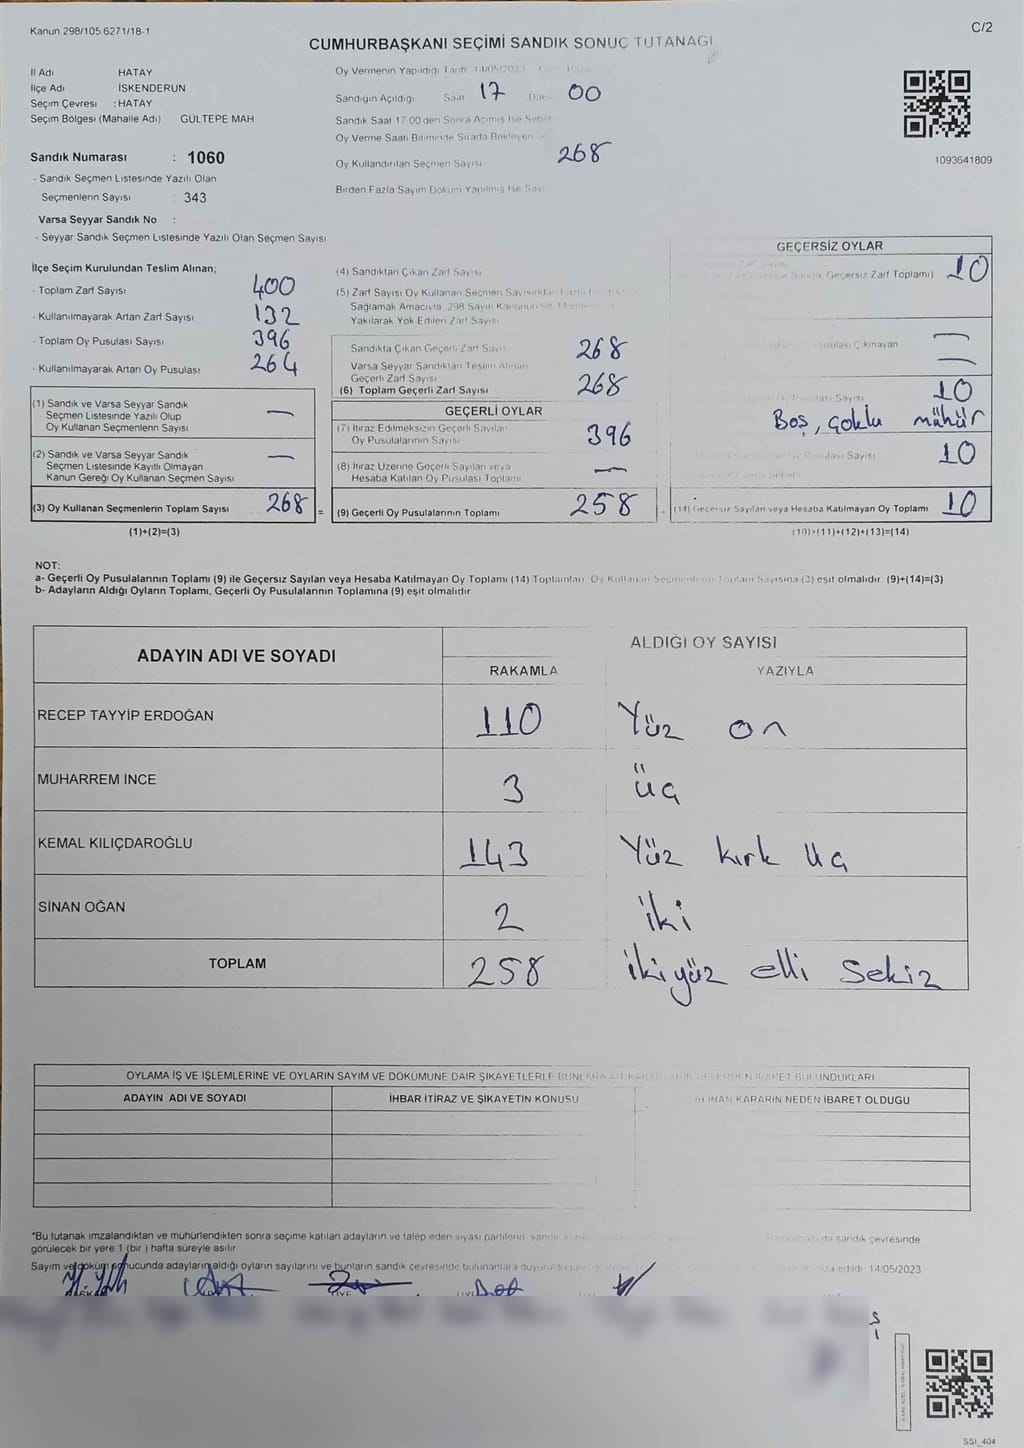 Kanun 298/105 6271/18-1
C/2
CUMHURBAŞKANI SEÇİMİ SANDIK SONUÇ TUTANAĞI
İl Adı HATAY
İlçe Adı İSKENDERUN
Seçim Çevresi : HATAY
Seçim Bölgesi (Mahalle Adı) GÜLTEPE MAH
Sandık Numarası : 1060
- Sandık Seçmen Listesinde Yazılı Olan
Seçmenlerin Sayısı : 343
Varsa Seyyar Sandık No :
- Seyyar Sandık Seçmen Listesinde Yazılı Olan Seçmen Sayısı
Oy Vermenin Yapıldığı Tarih 14/05/2023
Sandığın Açıldığı Saat 17 00
Sandık Saat 17 00 den Sonra Açılmış İse
Oy Verme Saati Bitiminde Sırada Bekleyen
Oy Kullandırılan Seçmen Sayısı 268
Birden Fazla Sayım Döküm Yapılmış İse
1093641809
İlçe Seçim Kurulundan Teslim Alınan;
- Toplam Zarf Sayısı 400
- Kullanılmayarak Artan Zarf Sayısı 132
- Toplam Oy Pusulası Sayısı 396
- Kullanılmayarak Artan Oy Pusulası 264
(1) Sandık ve Varsa Seyyar Sandık
Seçmen Listesinde Yazılı Olup
Oy Kullanan Seçmenlerin Sayısı —
(2) Sandık ve Varsa Seyyar Sandık
Seçmen Listesinde Kayıtlı Olmayan
Kanun Gereği Oy Kullanan Seçmen Sayısı —
(3) Oy Kullanan Seçmenlerin Toplam Sayısı 268 =
(1)+(2)=(3)
(4) Sandıktan Çıkan Zarf Sayısı
(5) Zarf Sayısı Oy Kullanan Seçmen Sayısından
Sağlamak Amacıyla 298 Sayılı
Yakılarak Yok Edilen Zarf Sayısı
Sandıkta Çıkan Geçerli Zarf Sayısı 268
Varsa Seyyar Sandıktan Teslim Alınan
Geçerli Zarf Sayısı
(6) Toplam Geçerli Zarf Sayısı 268
GEÇERLİ OYLAR
(7) İtiraz Edilmeksizin Geçerli Sayılan
Oy Pusulalarının Sayısı 396
(8) İtiraz Üzerine Geçerli Sayılan veya
Hesaba Katılan Oy Pusulası Toplamı —
(9) Geçerli Oy Pusulalarının Toplamı 258
GEÇERSİZ OYLAR
Geçersiz Zarf Toplamı) 10
Çıkmayan —
—
Sayısı 10
Boş, çoklu mühür
Sayısı 10
(14) Geçersiz Sayılan veya Hesaba Katılmayan Oy Toplamı 10
(10)+(11)+(12)+(13)=(14)
NOT:
a- Geçerli Oy Pusulalarının Toplamı (9) ile Geçersiz Sayılan veya Hesaba Katılmayan Oy Toplamı (14) Toplamları Oy Kullanan Seçmenlerin Toplam Sayısına (3) eşit olmalıdır. (9)+(14)=(3)
b- Adayların Aldığı Oyların Toplamı, Geçerli Oy Pusulalarının Toplamına (9) eşit olmalıdır
ADAYIN ADI VE SOYADI ALDIĞI OY SAYISI
RAKAMLA YAZIYLA
RECEP TAYYİP ERDOĞAN 110 Yüz on
MUHARREM İNCE 3 üç
KEMAL KILIÇDAROĞLU 143 Yüz kırk üç
SİNAN OĞAN 2 iki
TOPLAM 258 ikiyüz elli sekiz
OYLAMA İŞ VE İŞLEMLERİNE VE OYLARIN SAYIM VE DÖKÜMÜNE DAİR ŞİKAYETLERLE BUNLARA AİT KARARLARIN NEDEN İBARET BULUNDUKLARI
ADAYIN ADI VE SOYADI İHBAR İTİRAZ VE ŞİKAYETİN KONUSU ALINAN KARARIN NEDEN İBARET OLDUĞU
*Bu tutanak imzalandıktan ve mühürlendikten sonra seçime katılan adayların ve talep eden siyasi partilerin sandık çevresinde
görülecek bir yere 1 (bir ) hafta süreyle asılır
Sayım ve döküm sonucunda adayların aldığı oyların sayılarını ve bunların sandık çevresinde bulunanlara edildi 14/05/2023
SSİ_404